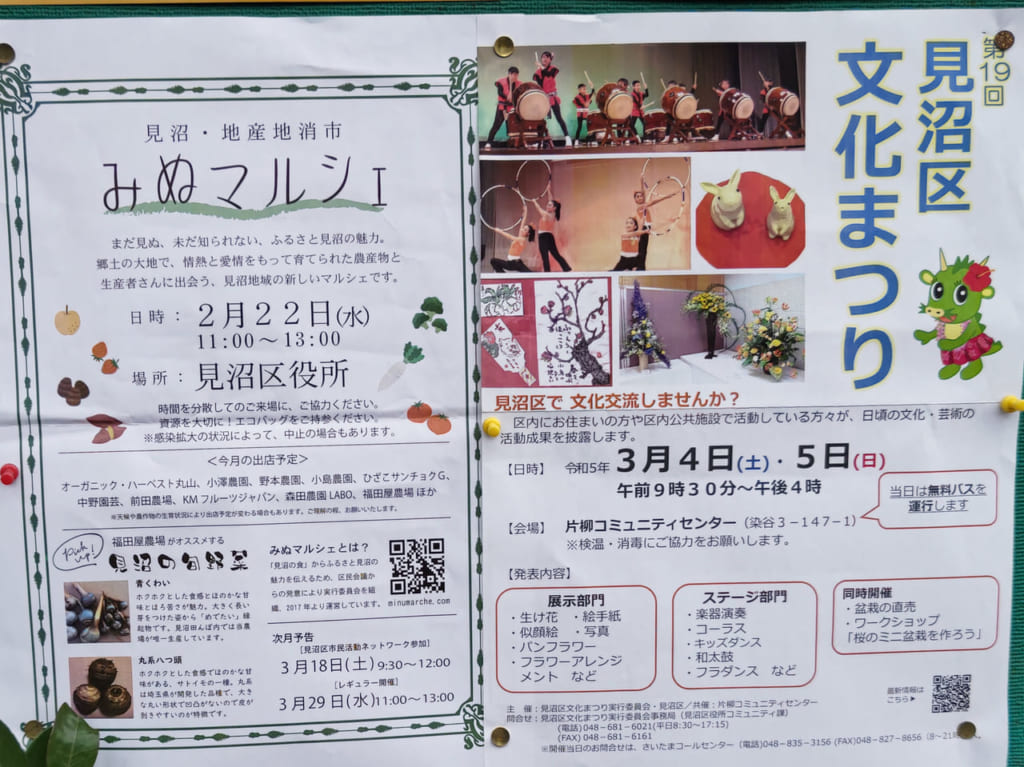 見沼・地産地消市
みぬマルシェ
まだ見ぬ、未だ知られない、ふるさと見沼の魅力。
郷土の大地で、情熱と愛情をもって育てられた農産物と
生産者さんに出会う、見沼地域の新しいマルシェです。
日時：２月２２日(水)
11:00～13:00
場所：見沼区役所
時間を分散してのご来場に、ご協力ください。
資源を大切に！エコバッグをご持参ください。
※感染拡大の状況によって、中止の場合もあります。
＜今月の出店予定＞
オーガニック・ハーベスト丸山、小澤農園、野本農園、小島農園、ひざこサンチョクG、
中野園芸、前田農場、KMフルーツジャパン、森田農園LABO、福田屋農場 ほか
※天候や農作物の生育状況により出店予定が変わる場合もあります。ご理解の程、お願いいたします。
Pick up!
福田屋農場がオススメする
見沼の旬野菜
青くわい
ホクホクとした食感とほのかな甘
味とほろ苦さが魅力。大きく長い
芽をつけた姿から「めでたい」縁
起物です。見沼田んぼ内では当農
場が唯一生産しています。
丸系八つ頭
ホクホクとした食感でほのかな甘
味がある、サトイモの一種。丸系
は埼玉県が開発した品種で、大き
な丸い形状で凹凸がないので皮が
剥きやすいのが特徴です。
みぬマルシェとは？
「見沼の食」からふるさと見沼の
魅力を伝えるため、区民会議か
らの発意により実行委員会を組
織、2017年より運営しています。
minumarche.com
次月予告
[見沼区市民活動ネットワーク参加]
3月18日(土) 9:30～12:00
[レギュラー開催]
3月29日(水)11:00～13:00
第19回
見沼区
文化まつり
見沼区で 文化交流しませんか？
区内にお住まいの方や区内公共施設で活動している方々が、日頃の文化・芸術の
活動成果を披露します。
【日時】 令和5年 ３月４日(土)・５日(日)
午前９時３０分～午後４時
当日は無料バスを
運行します
【会場】 片柳コミュニティセンター（染谷３－147－1）
※検温・消毒にご協力をお願いします。
【発表内容】
展示部門
・生け花 ・絵手紙
・似顔絵 ・写真
・パンフラワー
・フラワーアレンジ
メント など
ステージ部門
・楽器演奏
・コーラス
・キッズダンス
・和太鼓
・フラダンス など
同時開催
・盆栽の直売
・ワークショップ
「桜のミニ盆栽を作ろう」
最新情報は
こちら▶
主 催：見沼区文化まつり実行委員会・見沼区／共催：片柳コミュニティセンター
問合せ：見沼区文化まつり実行委員会事務局（見沼区役所コミュニティ課）
(電話)048-681-6021(平日8:30～17:15)
(FAX) 048-681-6161
※開催当日のお問合せは、さいたまコールセンター（電話)048-835-3156 (FAX)048-827-8656（8～21時